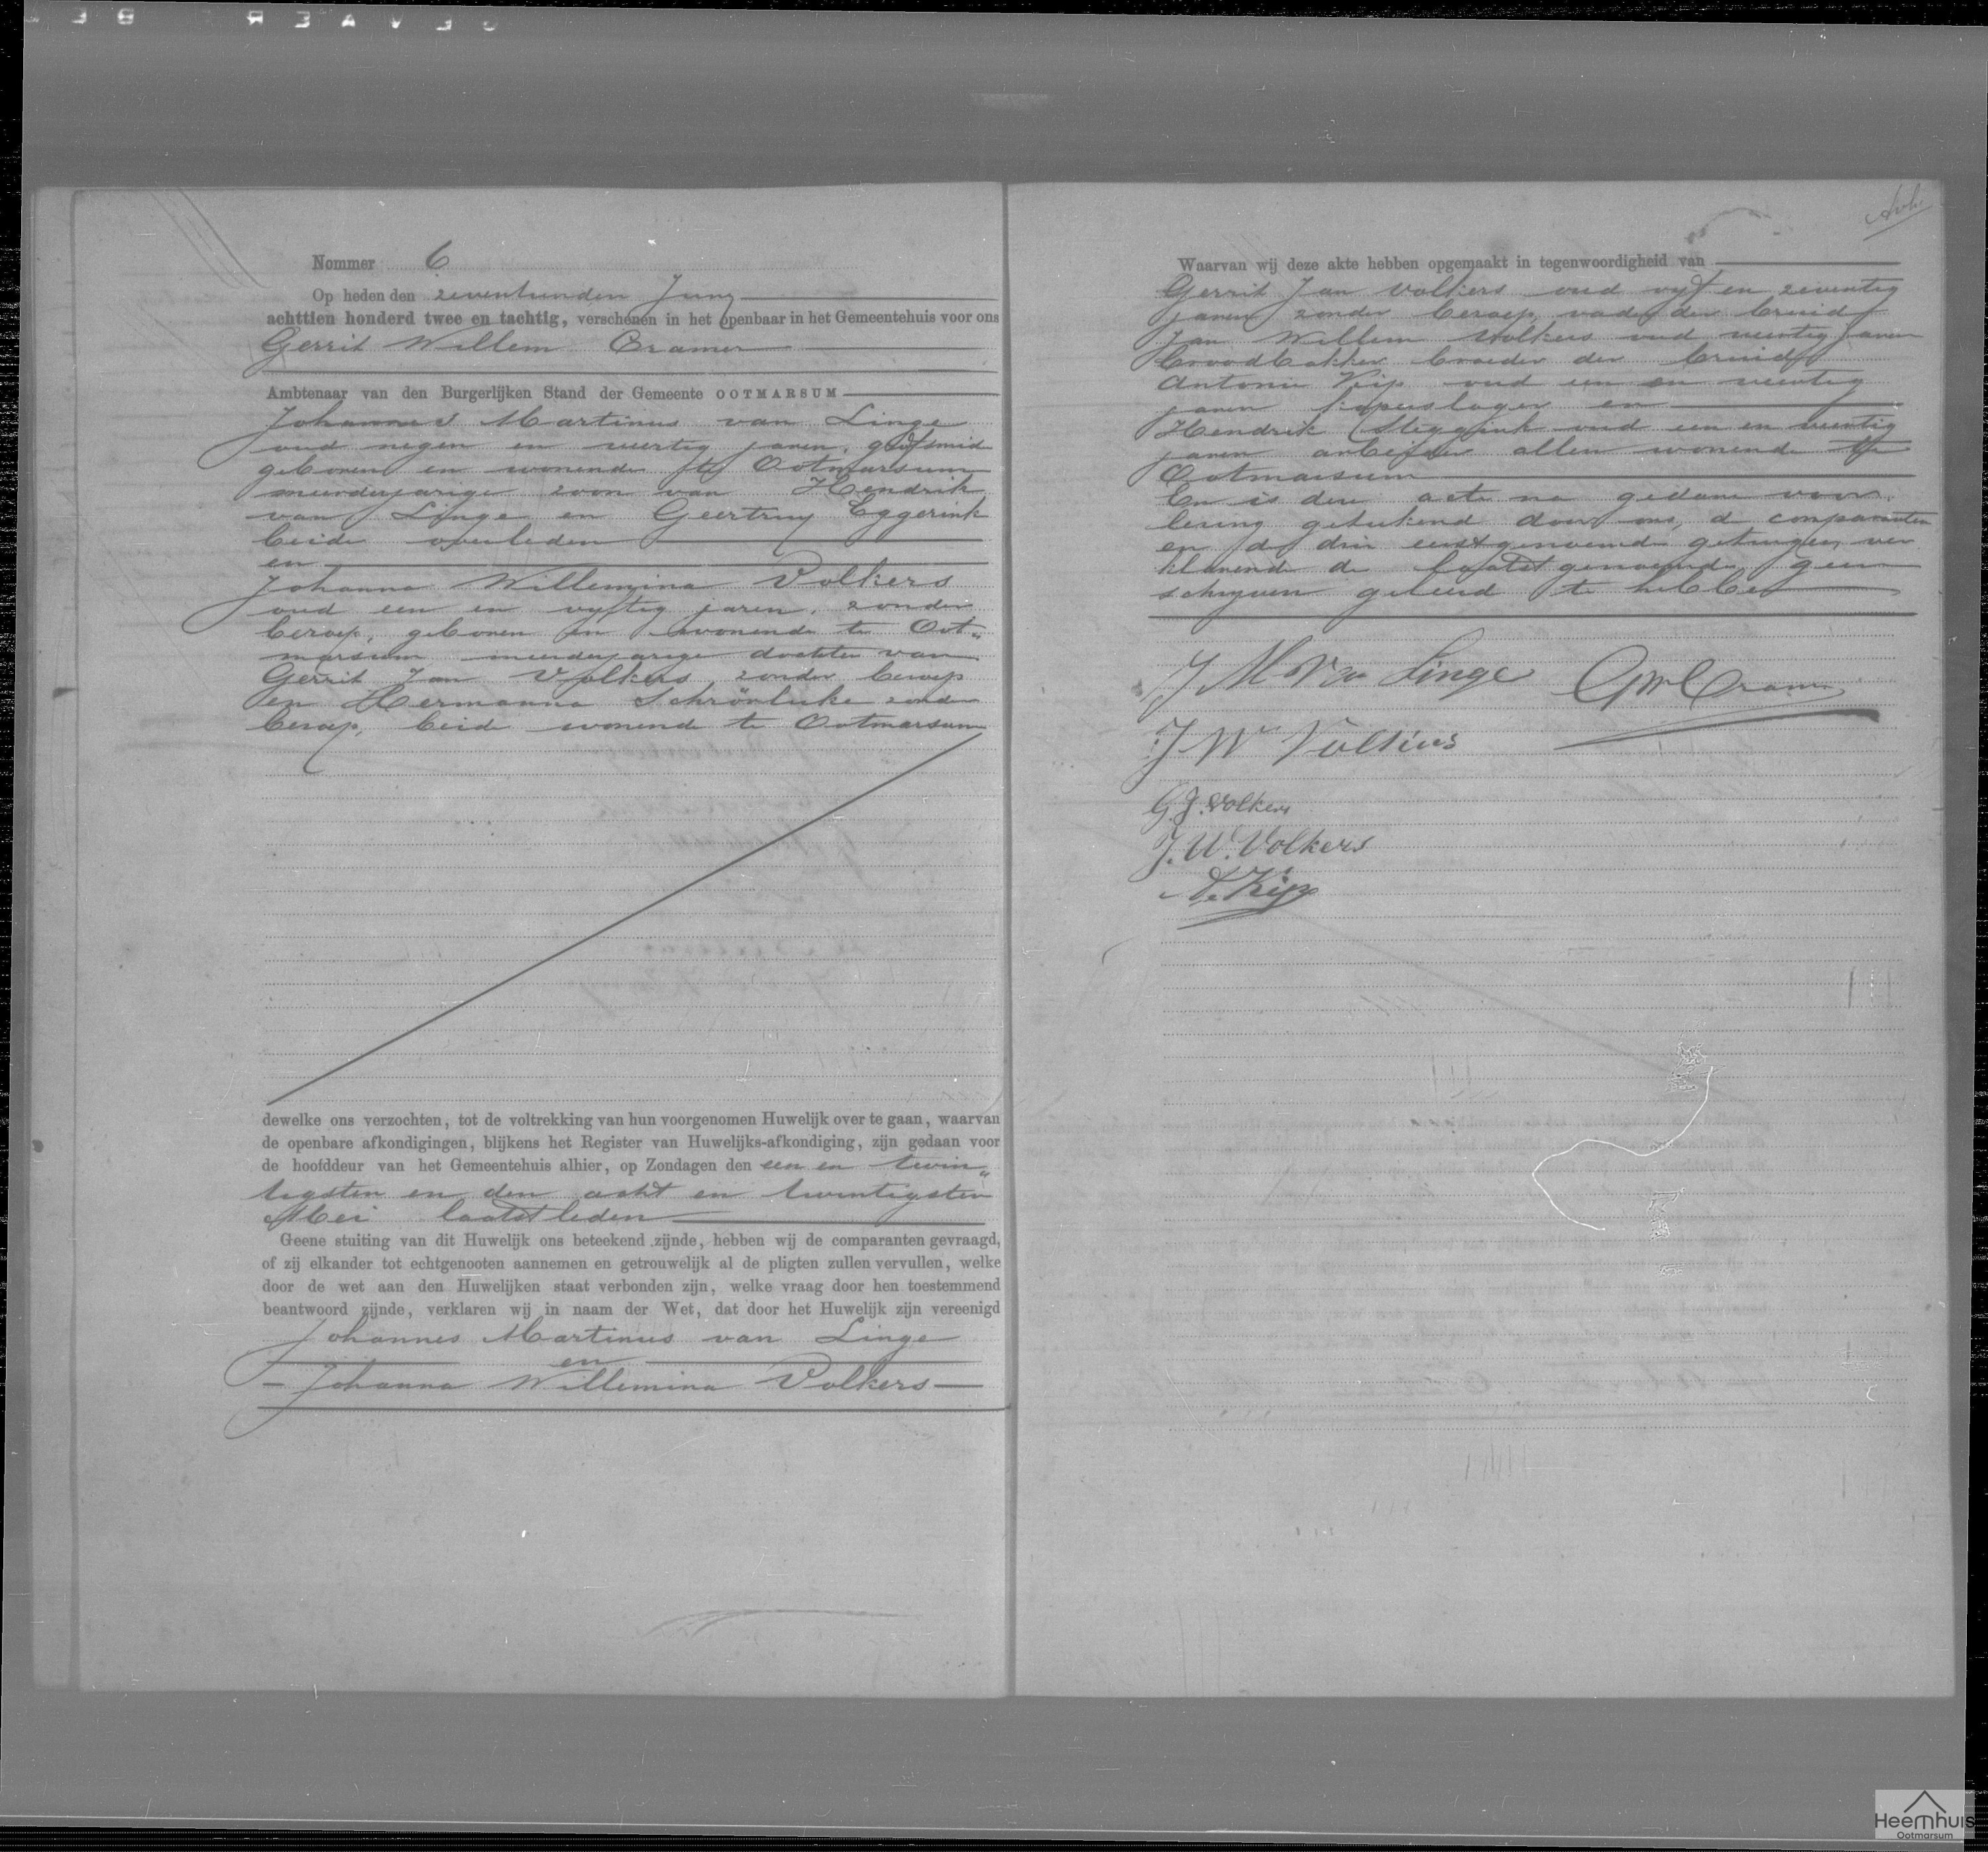 Nommer 6
Op heden den zeventienden Juny
achttien honderd twee en tachtig, verschenen in het openbaar in het Gemeentehuis voor ons
Gerrit Willem Cramer
Ambtenaar van den Burgerlijken Stand der Gemeente OOTMARSUM
Johannes Martinus van Linge
oud negen en veertig jaren, grofsmid
geboren en wonende te Ootmarsum
meerderjarige zoon van Hendrik
van Linge en Geertruy Eggerink
beide overleden
en
Johanna Willemina Volkers
oud een en vyftig jaren, zonder
beroep, geboren en wonende te Oot„
marsum meerderjarige dochter van
Gerrit Jan Volkers, zonder beroep
en Hermanna zonder
beroep, beide wonend te Ootmarsum
dewelke ons verzochten, tot de voltrekking van hun voorgenomen Huwelijk over te gaan, waarvan
de openbare afkondigingen, blijkens het Register van Huwelijks-afkondiging, zijn gedaan voor
de hoofddeur van het Gemeentehuis alhier, op Zondagen den een en twin„
tigsten en den acht en twintigsten
Mei laatstleden
Geene stuiting van dit Huwelijk ons beteekend zijnde, hebben wij de comparanten gevraagd,
of zij elkander tot echtgenooten aannemen en getrouwelijk al de pligten zullen vervullen, welke
door de wet aan den Huwelijken staat verbonden zijn, welke vraag door hen toestemmend
beantwoord zijnde, verklaren wij in naam der Wet, dat door het Huwelijk zijn vereenigd
Johannes Martinus van Linge
en
Johanna Willemina Volkers
Waarvan wij deze akte hebben opgemaakt in tegenwoordigheid van
Gerrit Jan Volkers oud vyf en zeventig
jaren zonder beroep, vader der bruid
Jan Willem Volkers oud veertig jaren
broodbakker broeder der bruid
Antonie Kip oud een en veertig
jaren koperslager en
Hendrik Steggink oud een en veertig
jaren arbeider allen wonende te
Ootmarsum
En is deze acte na gedane voor„
lezing geteekend door ons, de comparanten
en de drie eerstgenoemde getuigen, ver
klarende de laatstgenoemde geen
schryven geleerd te hebben
J M van Linge GWCramer
J W Volkers
G. J. Volkers
J. W. Volkers
A. Kip
Heemhuis
Ootmarsum